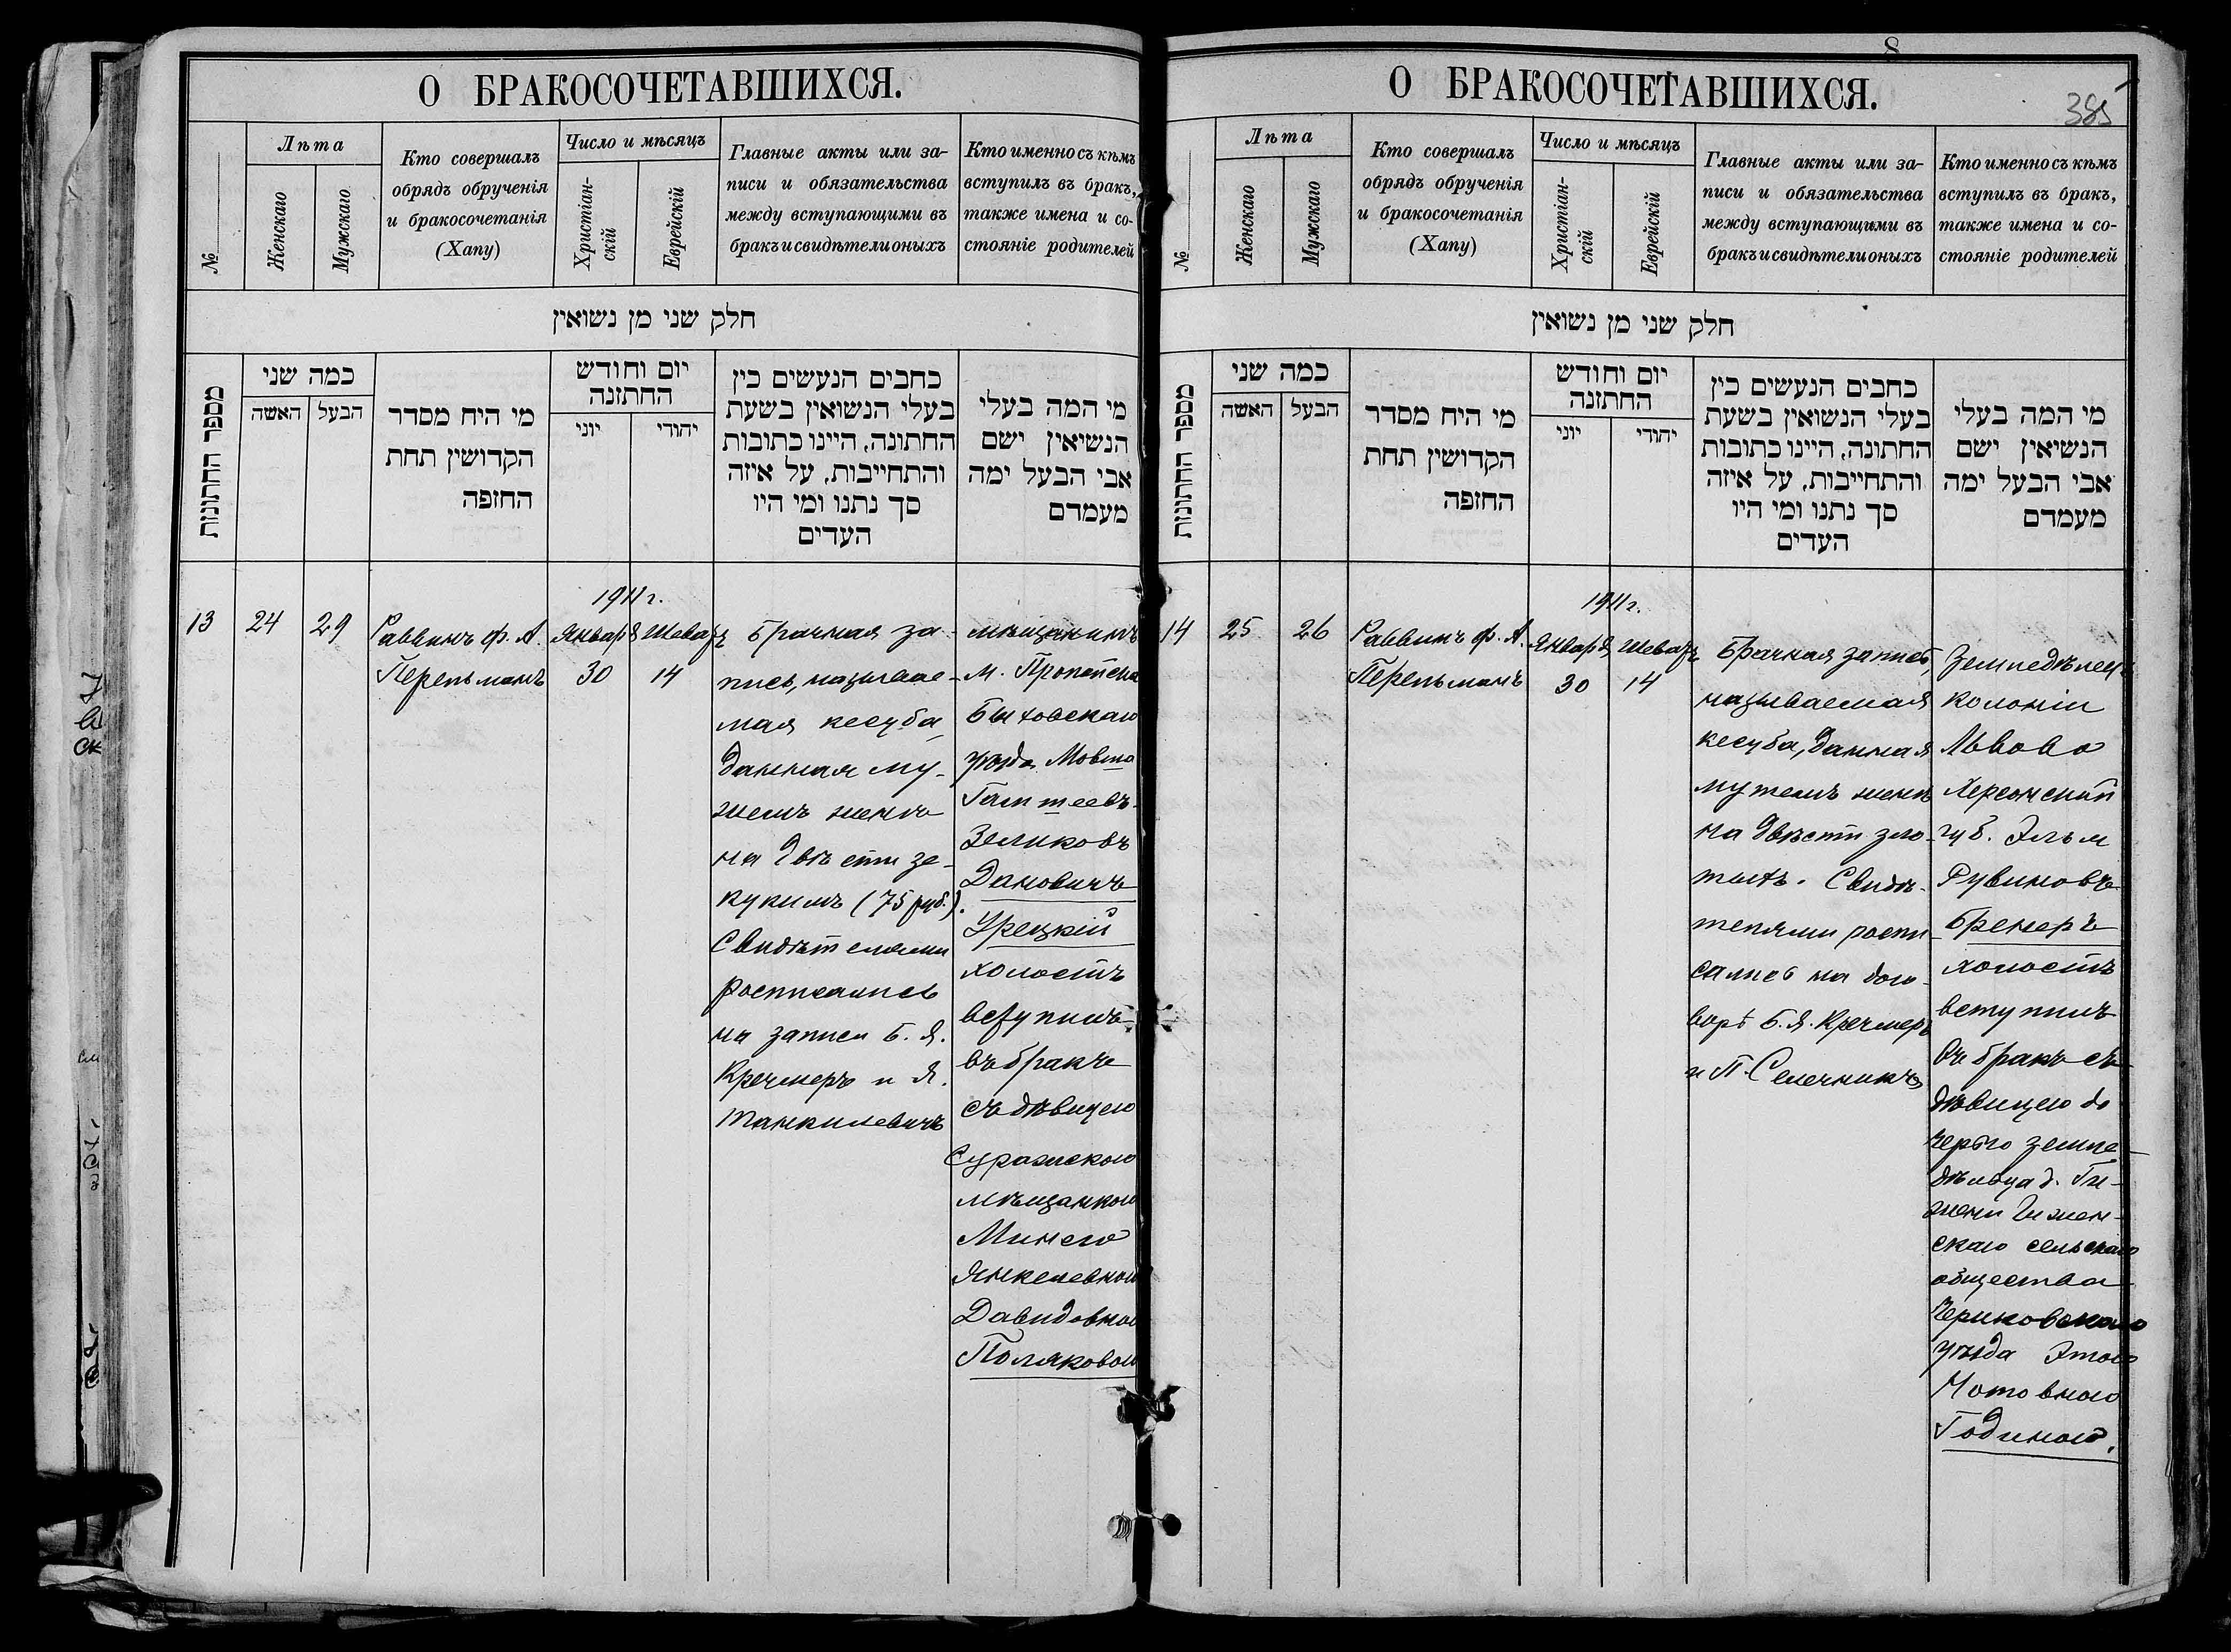 О БРАКОСОЧЕТАВШИХСЯ.
№
Лѣта
Женскаго
Мужскаго
Кто совершалъ
обрядъ обрученія
и бракосочетанія
(Хапу)
Число и мѣсяцъ
Христіан-
скій
Еврейскій
Главные акты или за-
писи и обязательства
между вступающими въ
бракъ и свидѣтели оныхъ
Кто именно съ кѣмъ
вступилъ въ бракъ,
также имена и со-
стояніе родителей
חלק שני מן נשואין
מספר החתונות
כמה שני
האשה
הבעל
מי היח מסדר
הקדושין תחת
החזפה
יום וחודש
החתזנה
יוני
יהודי
כחבים הנעשים כין
בעלי הנשואין בשעת
החתונה, היינו כתובות
והתחייבות, על איזה
סך נתנו ומי היו
העדים
מי המה בעלי
הנשיאין ישם
אבי הבעל ימה
מעמדם
13
24
29
Раввинъ Ф. А.
Перельманъ
1911 г.
Января
30
Шеватъ
14
Брачная за-
пись, называе-
мая кесуба,
данная му-
жемъ женѣ
на двѣсти зе-
кукимъ (75 руб.).
Свидѣтелями
росписались
на записи Б. Я.
Кречмеръ и Я.
Танкилевичъ
мѣщанинъ
м. Пропойска
Быховскаго
уѣзда Мовша
Зеликовъ
Дановичъ
Урецкій
холостъ
вступилъ
въ бракъ
съ дѣвицею
Суражскою
мѣщанкою
Минею
Янкелевною
Давидовною
Поляковою
8
385
О БРАКОСОЧЕТАВШИХСЯ.
№
Лѣта
Женскаго
Мужскаго
Кто совершалъ
обрядъ обрученія
и бракосочетанія
(Хапу)
Число и мѣсяцъ
Христіан-
скій
Еврейскій
Главные акты или за-
писи и обязательства
между вступающими въ
бракъ и свидѣтели оныхъ
Кто именно съ кѣмъ
вступилъ въ бракъ,
также имена и со-
стояніе родителей
חלק שני מן נשואין
מספר החתונות
כמה שני
האשה
הבעל
מי היח מסדר
הקדושין תחת
החזפה
יום וחודש
החתזנה
יוני
יהודי
כחבים הנעשים כין
בעלי הנשואין בשעת
החתונה, היינו כתובות
והתחייבות, על איזה
סך נתנו ומי היו
העדים
מי המה בעלי
הנשיאין ישם
אבי הבעל ימה
מעמדם
14
25
26
Раввинъ Ф. А.
Перельманъ
1911 г.
Января
30
Шеватъ
14
Брачная запись,
называемая
кесуба, данная
мужемъ женѣ
на двѣсти зло-
тыхъ. Свидѣ-
телями роспи-
сались на дого-
ворѣ Б. Я. Кречмеръ
и П. Селечникъ
Земледѣлецъ
колоніи
Львово
Херсонской
губ. Эльм
Рувиновъ
Бренеръ
холостъ
вступилъ
въ бракъ съ
дѣвицею до
черью земле-
дѣльца д. Ги-
жени Гижен-
скаго сельскаго
общества
Чериковскаго
уѣзда Этою
Нотовною
Годиною.